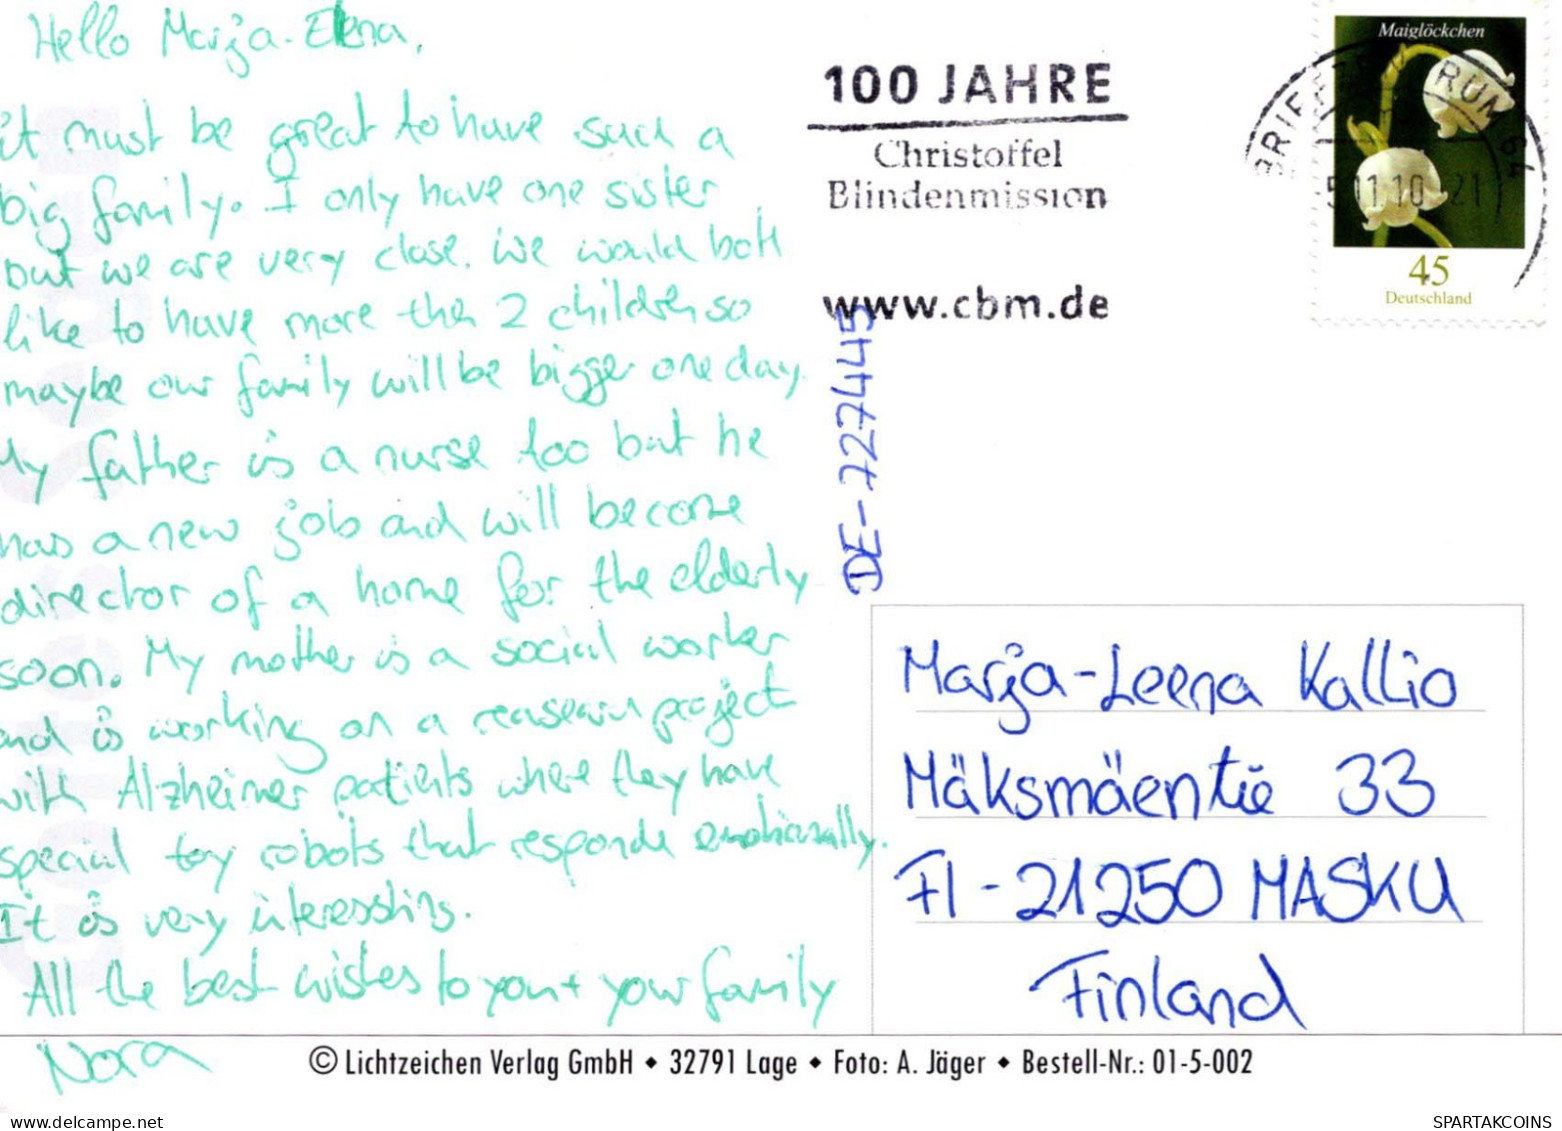 Hello Marja-Elena,
it must be great to have such a
big family. I only have one sister
but we are very close. We would both
like to have more then 2 children so
maybe our family will be bigger one day.
My father is a nurse too but he
has a new job and will become
director of a home for the elderly
soon. My mother is a social worker
and is working on a research project
with Alzheimer patients where they have
special toy robots that responde emotionally.
It is very interessting.
All the best wishes to you + your family
Nora
100 JAHRE
Christoffel
Blindenmission
www.cbm.de
Maiglöckchen
45
Deutschland
BRIEFZENTRUM 64
5.11.10 21
DE-727445
Marja-Leena Kallio
Mäksmäentie 33
FI-21250 MASKU
Finland
© Lichtzeichen Verlag GmbH ◆ 32791 Lage ◆ Foto: A. Jäger ◆ Bestell-Nr.: 01-5-002
delcampe.net
SPARTAKCOINS